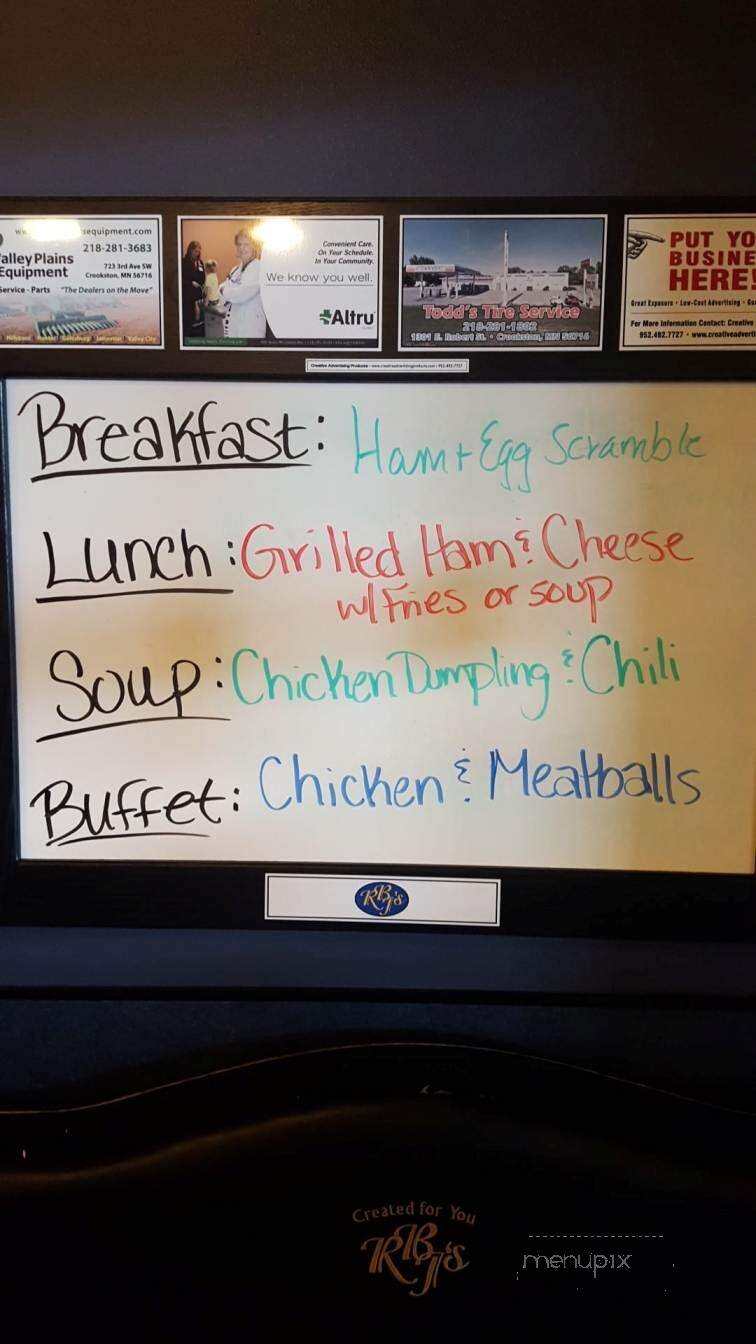 sequipment.com
218-281-3683
Valley Plains
Equipment
723 3rd Ave SW
Crookston, MN 56716
Service - Parts "The Dealers on the Move"
Convenient Care.
On Your Schedule.
In Your Community.
We know you well.
Altru
Todd's Tire Service
218-281-1802
1301 E. Robert St. • Crookston, MN 56716
PUT YO
BUSINE
HERE!
Great Exposure • Low-Cost Advertising
For More Information Contact: Creative
952.492.7727 • www.creativeadverti
Breakfast: Ham + Egg Scramble
Lunch: Grilled Ham & Cheese
w/ Fries or soup
Soup: Chicken Dumpling & Chili
Buffet: Chicken & Meatballs
RBJ's
Created for You
RBJ's
menupix